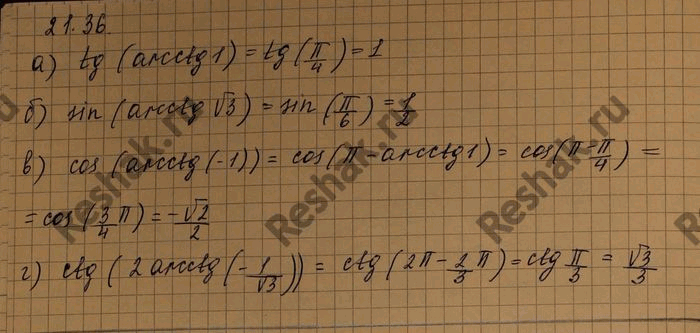 21.36.
а) tg (arcctg 1) = tg (π/4) = 1
б) sin (arcctg √3) = sin (π/6) = 1/2
в) cos (arcctg (-1)) = cos (π - arcctg 1) = cos (π - π/4) =
= cos (3/4 π) = -√2/2
г) ctg (2 arcctg (-1/√3)) = ctg (2π - 2/3 π) = ctg π/3 = √3/3
Reshak.ru
Reshak.ru
Reshak.ru